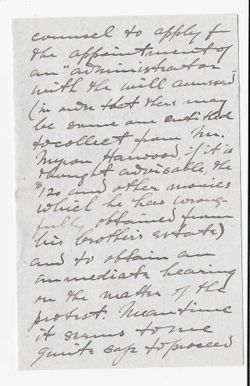 counsel to apply f
the appointment of
an "administrator
with the will annexed"
(in order that there may
be some one entitled
to collect from Mr.
Myron Harwood, if it is
thought advisable, the
$120 and other monies
which he has wrong-
fully obtained from
his brother's estate)
and to obtain an
immediate hearing
on the matter of the
protest. Meantime
it seems to me
quite safe to proceed